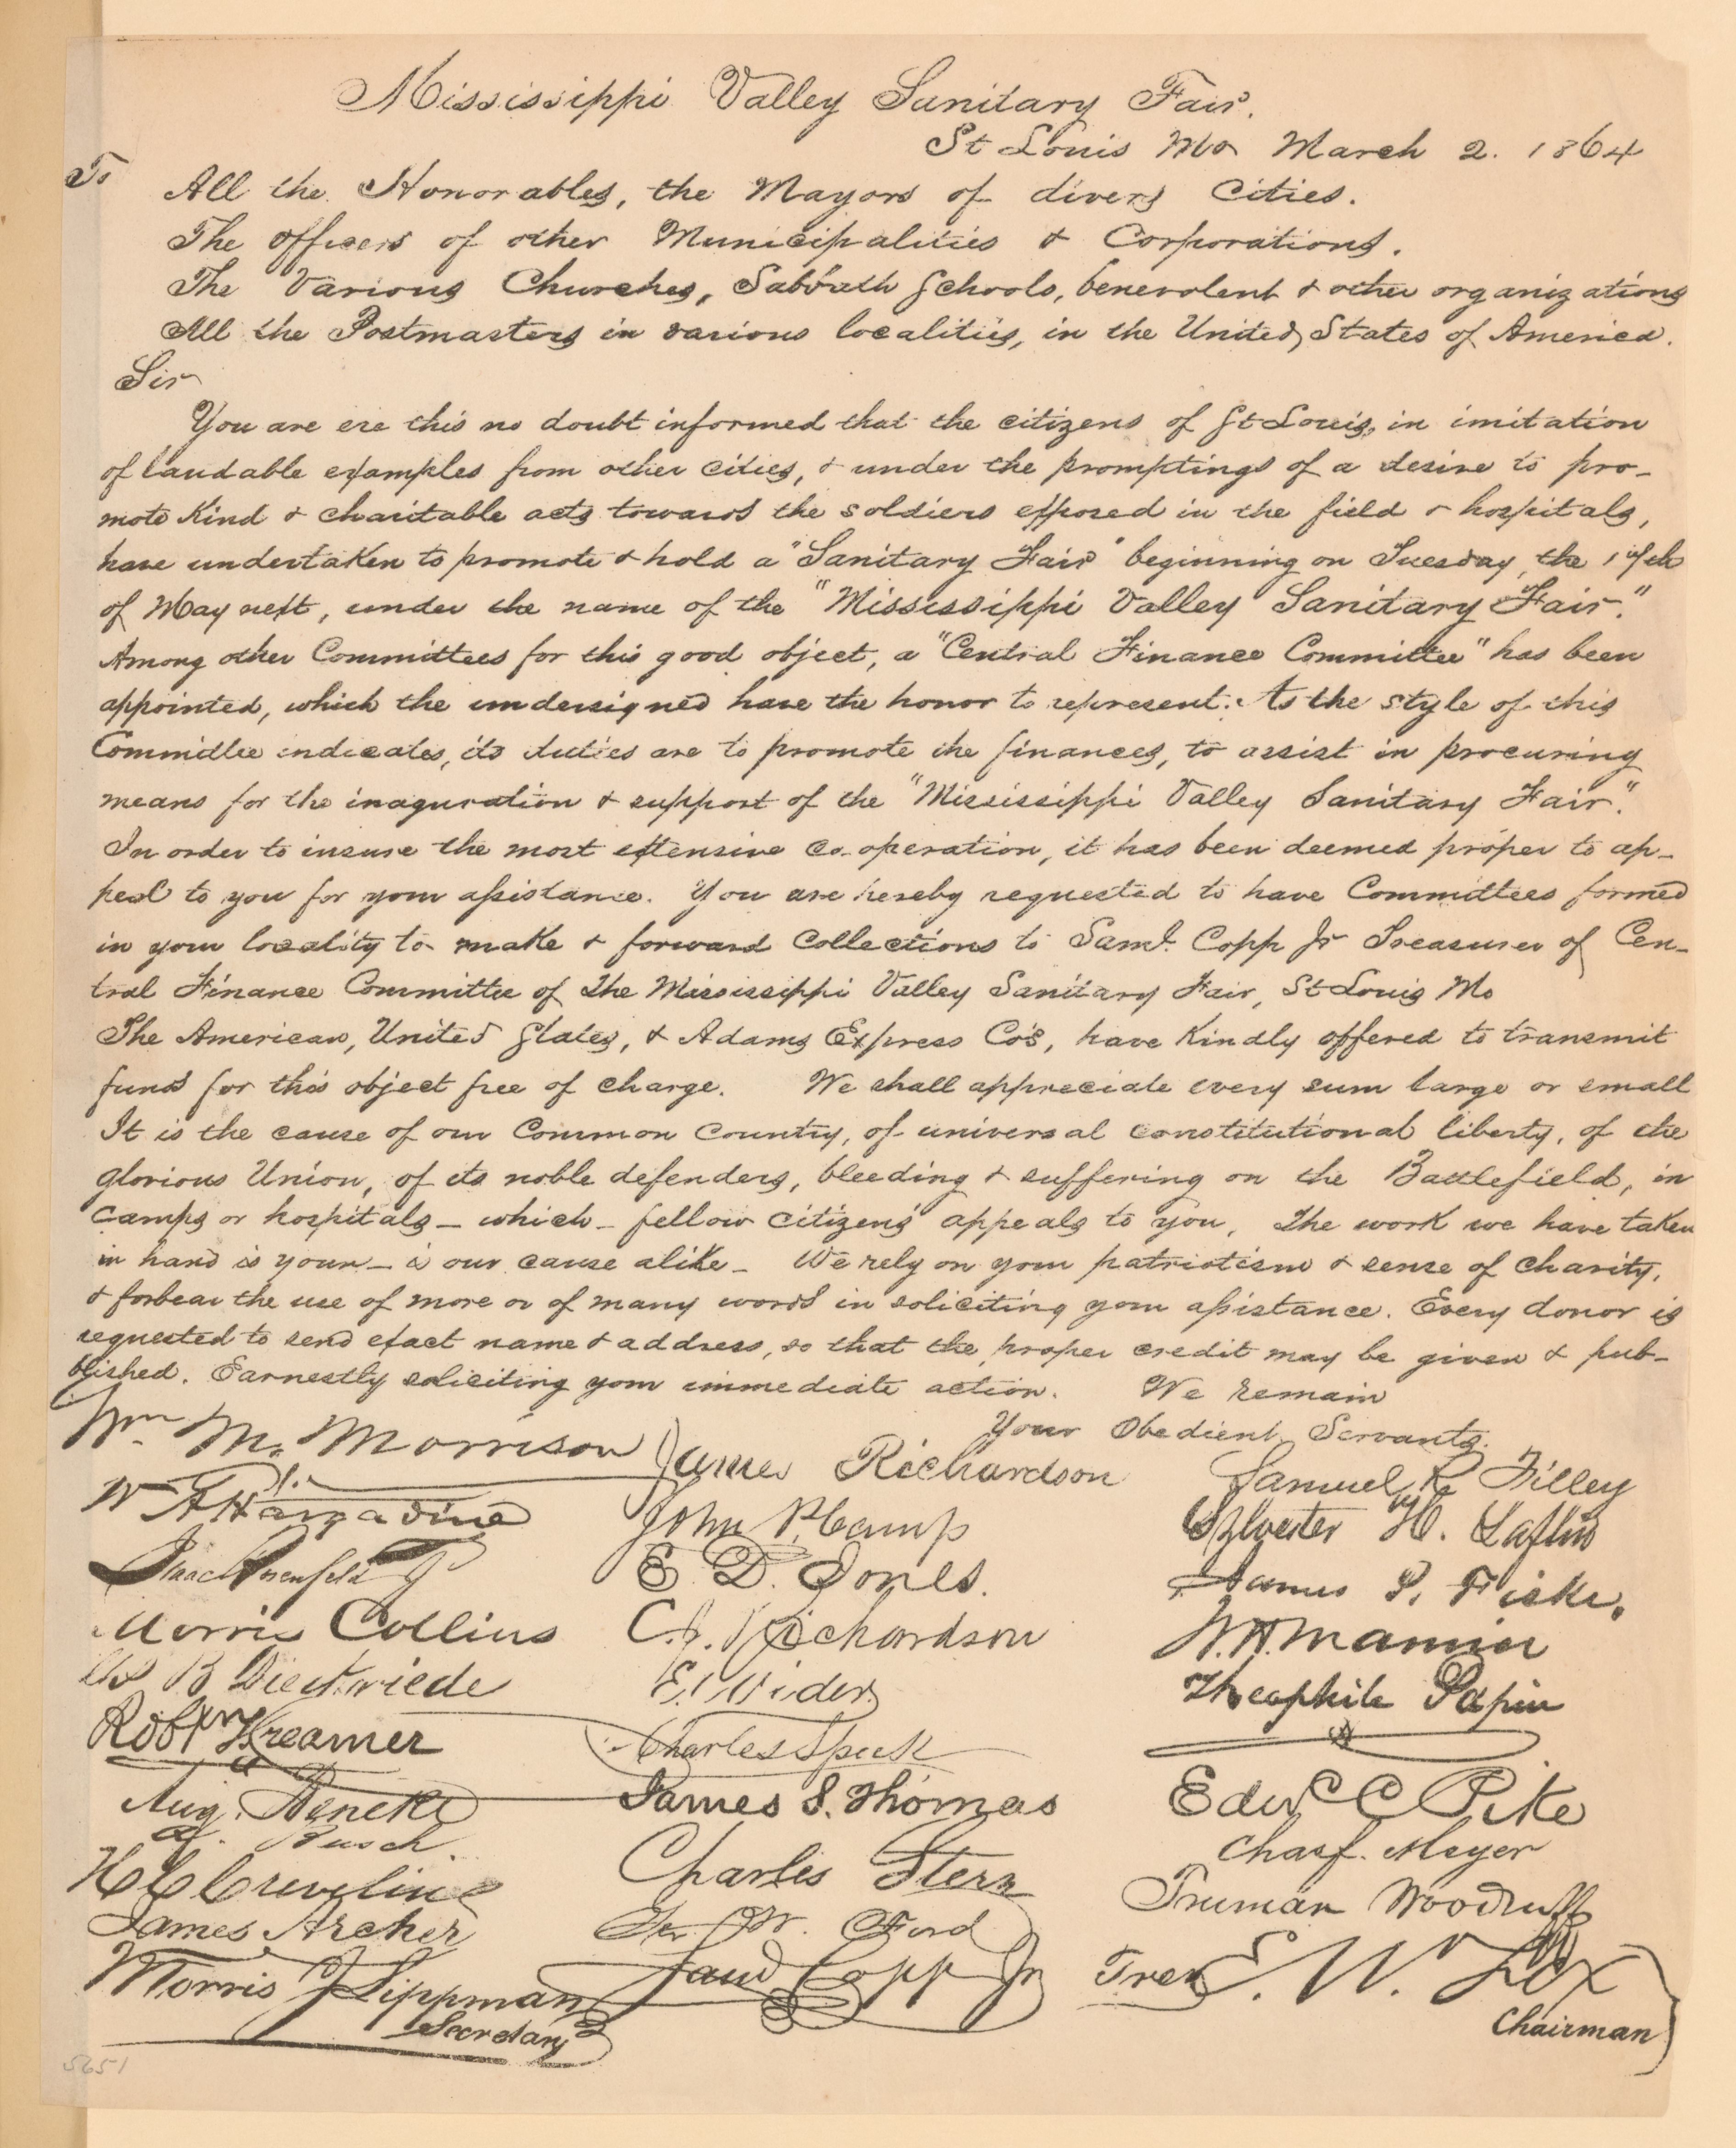 Mississippi Valley Sanitary Fair.
St Louis Mo March 2. 1864
To
All the Honorables, the Mayors of divers Cities.
The officers of other Municipalities & Corporations.
The Various Churches, Sabbath Schools, benevolent & other organizations
All the Postmasters in various localities, in the United States of America.
Sir
You are ere this no doubt informed that the citizens of St Louis, in imitation
of laudable examples from other cities, & under the promptings of a desire to pro-
mote kind & charitable acts towards the soldiers exposed in the field & hospitals,
have undertaken to promote & hold a "Sanitary Fair" beginning on Tuesday, the 17th
of May next, under the name of the "Mississippi Valley Sanitary Fair."
Among other Committees for this good object, a "Central Finance Committee" has been
appointed, which the undersigned have the honor to represent. As the style of this
Committee indicates, its duties are to promote the finances, to assist in procuring
means for the inaguration & support of the "Mississippi Valley Sanitary Fair."
In order to insure the most extensive co-operation, it has been deemed proper to ap-
peal to you for your assistance. You are hereby requested to have Committees formed
in your locality to make & forward collections to Saml. Copp Jr Treasurer of Cen-
tral Finance Committee of the Mississippi Valley Sanitary Fair, St Louis Mo
The American, United States, & Adams Express Co's, have kindly offered to transmit
funds for this object free of charge. We shall appreciate every sum large or small
It is the cause of our Common Country, of universal constitutional liberty, of the
glorious Union, of its noble defenders, bleeding & suffering on the Battlefield, in
camps or hospitals - which - fellow citizens appeals to you. The work we have taken
in hand is your - is our cause alike - We rely on your patriotism & sense of charity,
& forbear the use of more or of many words in soliciting your assistance. Every donor is
requested to send exact name & address, so that the proper credit may be given & pub-
lished. Earnestly soliciting your immediate action. We remain
Your Obedient Servants.
Wm M. Morrison
James Richardson
Samuel R Filley
W A Hargadine
John P Camp
Sylvester H. Laflin
E. D. Jones.
James P. Fiske.
Morris Collins
C. J. Richardson
W. H. Mannier
B Dieckriede
Theophile Papin
Robt Kreamer
Charles Speck
Aug.
James S. Thomas
Edwd C Pike
Busch.
Chas F. Meyer
H C Creveling
Charles Stern
Truman Woodruff
James Archer
W. Ford
Morris J Lippman
Secretary
Saml Copp Jr
Trer
E. W. Fox
Chairman
5651